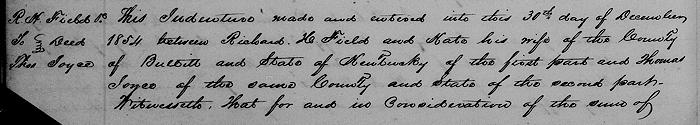 R. H. Field &c. This Indenture made and entered into this 30th day of December
To } Deed 1854 between Richard. H. Field and Kate his wife of the County
Thos Joyce of Bullitt and State of Kentucky of the first part and Thomas
Joyce of the same County and State of the second part-
Witnesseth. That for and in Consideration of the sum of